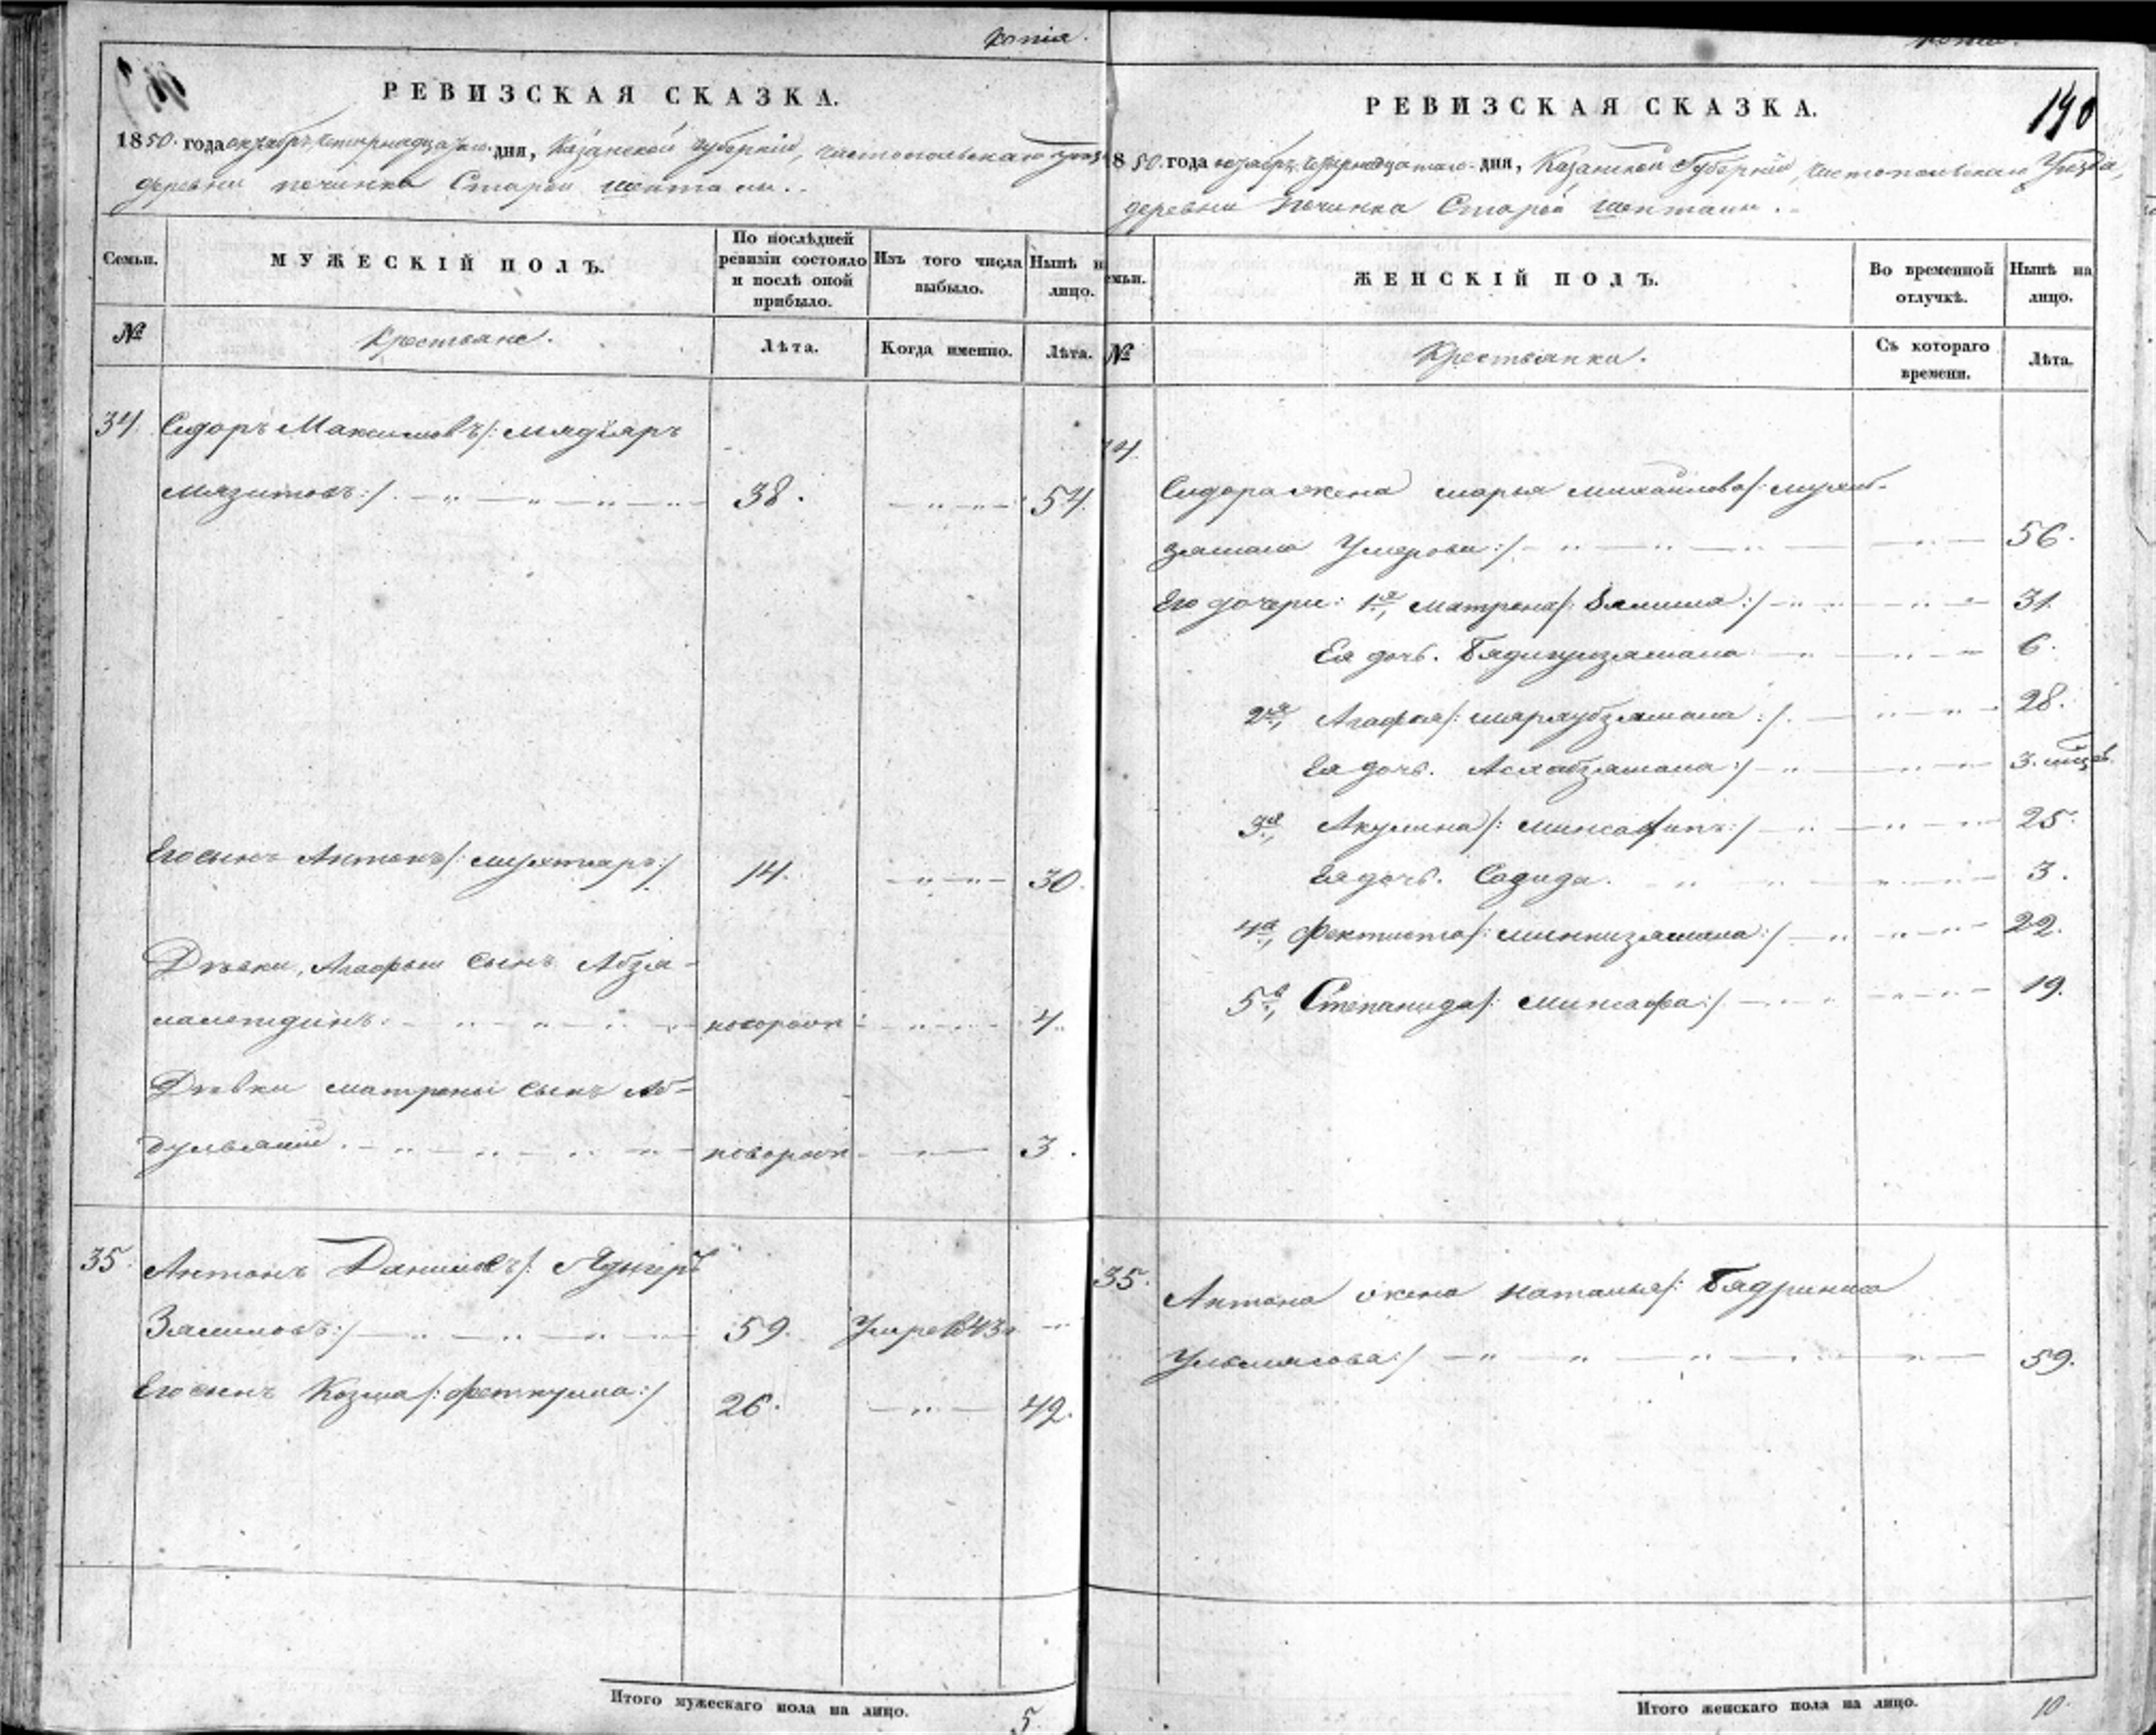 копія.
РЕВИЗСКАЯ СКАЗКА.
1850. года октября четырнадцатаго дня, Казанской губерніи, Чистопольскаго уѣзда
деревни починка Старой Шенталы..
Семьи.
МУЖЕСКІЙ ПОЛЪ.
По послѣдней ревизіи состояло и послѣ оной прибыло.
Изъ того числа выбыло.
Нынѣ на лицо.
№
Крестьяне.
Лѣта.
Когда именно.
Лѣта.
34. Сидоръ Максимовъ/: Мядіяръ
Мязитовъ:/. 38. 54.
Его сынъ Антонъ/: Мухтаръ:/ 14. 30.
Дѣвки, Агафьи сынъ Абза-
лалетдинъ. новорож 4.
Дѣвки Матрены сынъ Аб-
дулвалій. новорож 3.
35. Антонъ Даниловъ/: Ядыгеръ
Замиловъ:/ 59. Умре 1843
Его сынъ Козма/: Феткулла:/ 26. 42.
Итого мужескаго пола на лицо. 5.
копія.
190
РЕВИЗСКАЯ СКАЗКА.
850. года октября четырнадцатаго дня, Казанской Губерніи, Чистопольскаго Уѣзда,
деревни Починка Старой Шенталы..
емьи.
ЖЕНСКІЙ ПОЛЪ.
Во временной отлучкѣ.
Нынѣ на лицо.
№
Крестьянки.
Съ котораго времени.
Лѣта.
34.
Сидора жена Марья Михайлова/: Мухиб-
зямала Умерова:/ 56.
Его дочери: 1я, Матрена/: Зялила:/ 31
Ея дочь. Бядигузямала 6.
2я, Агафья/: Маряубзямала:/ 28.
Ея дочь. Аслабзямала:/ 3. мѣсц.
3я, Акулина/: Минсафипъ:/ 25.
Ея дочь. Садида. 3.
4я, Фектиста/: Миннизямала:/ 22.
5я, Степанида/: Минсафа:/ 19.
35. Антона жена Наталья/: Бядриниса
Ульмясова:/ 59.
Итого женскаго пола на лицо. 10.